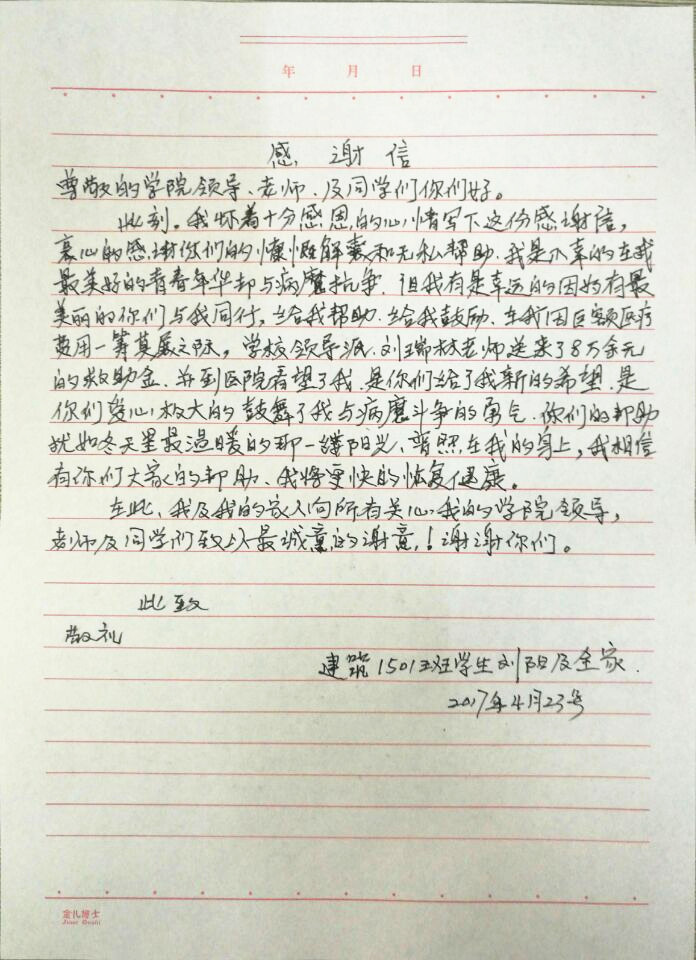 年 月 日
感谢信
尊敬的学院领导、老师、及同学们你们好。
此刻。我怀着十分感恩的心情写下这份感谢信，
衷心的感谢你们的慷慨解囊和无私帮助。我是不幸的在我
最美好的青春年华却与病魔抗争。但我有是幸运的因为有最
美丽的你们与我同行，给我帮助。给我鼓励。在我因巨额医疗
费用一筹莫展之际，学校领导派刘瑞林老师送来了8万余元
的救助金。并到医院看望了我。是你们给了我新的希望。是
你们爱心极大的鼓舞了我与病魔斗争的勇气。你们的帮助
就如冬天里最温暖的那一缕阳光、普照在我的身上，我相信
有你们大家的帮助、我将更快的恢复健康。
在此、我及我的家人向所有关心我的学院领导，
老师及同学们致以最诚意的谢意！谢谢你们。
此致
敬礼
建筑1501班学生刘阳及全家.
2017年4月23号
金儿博士